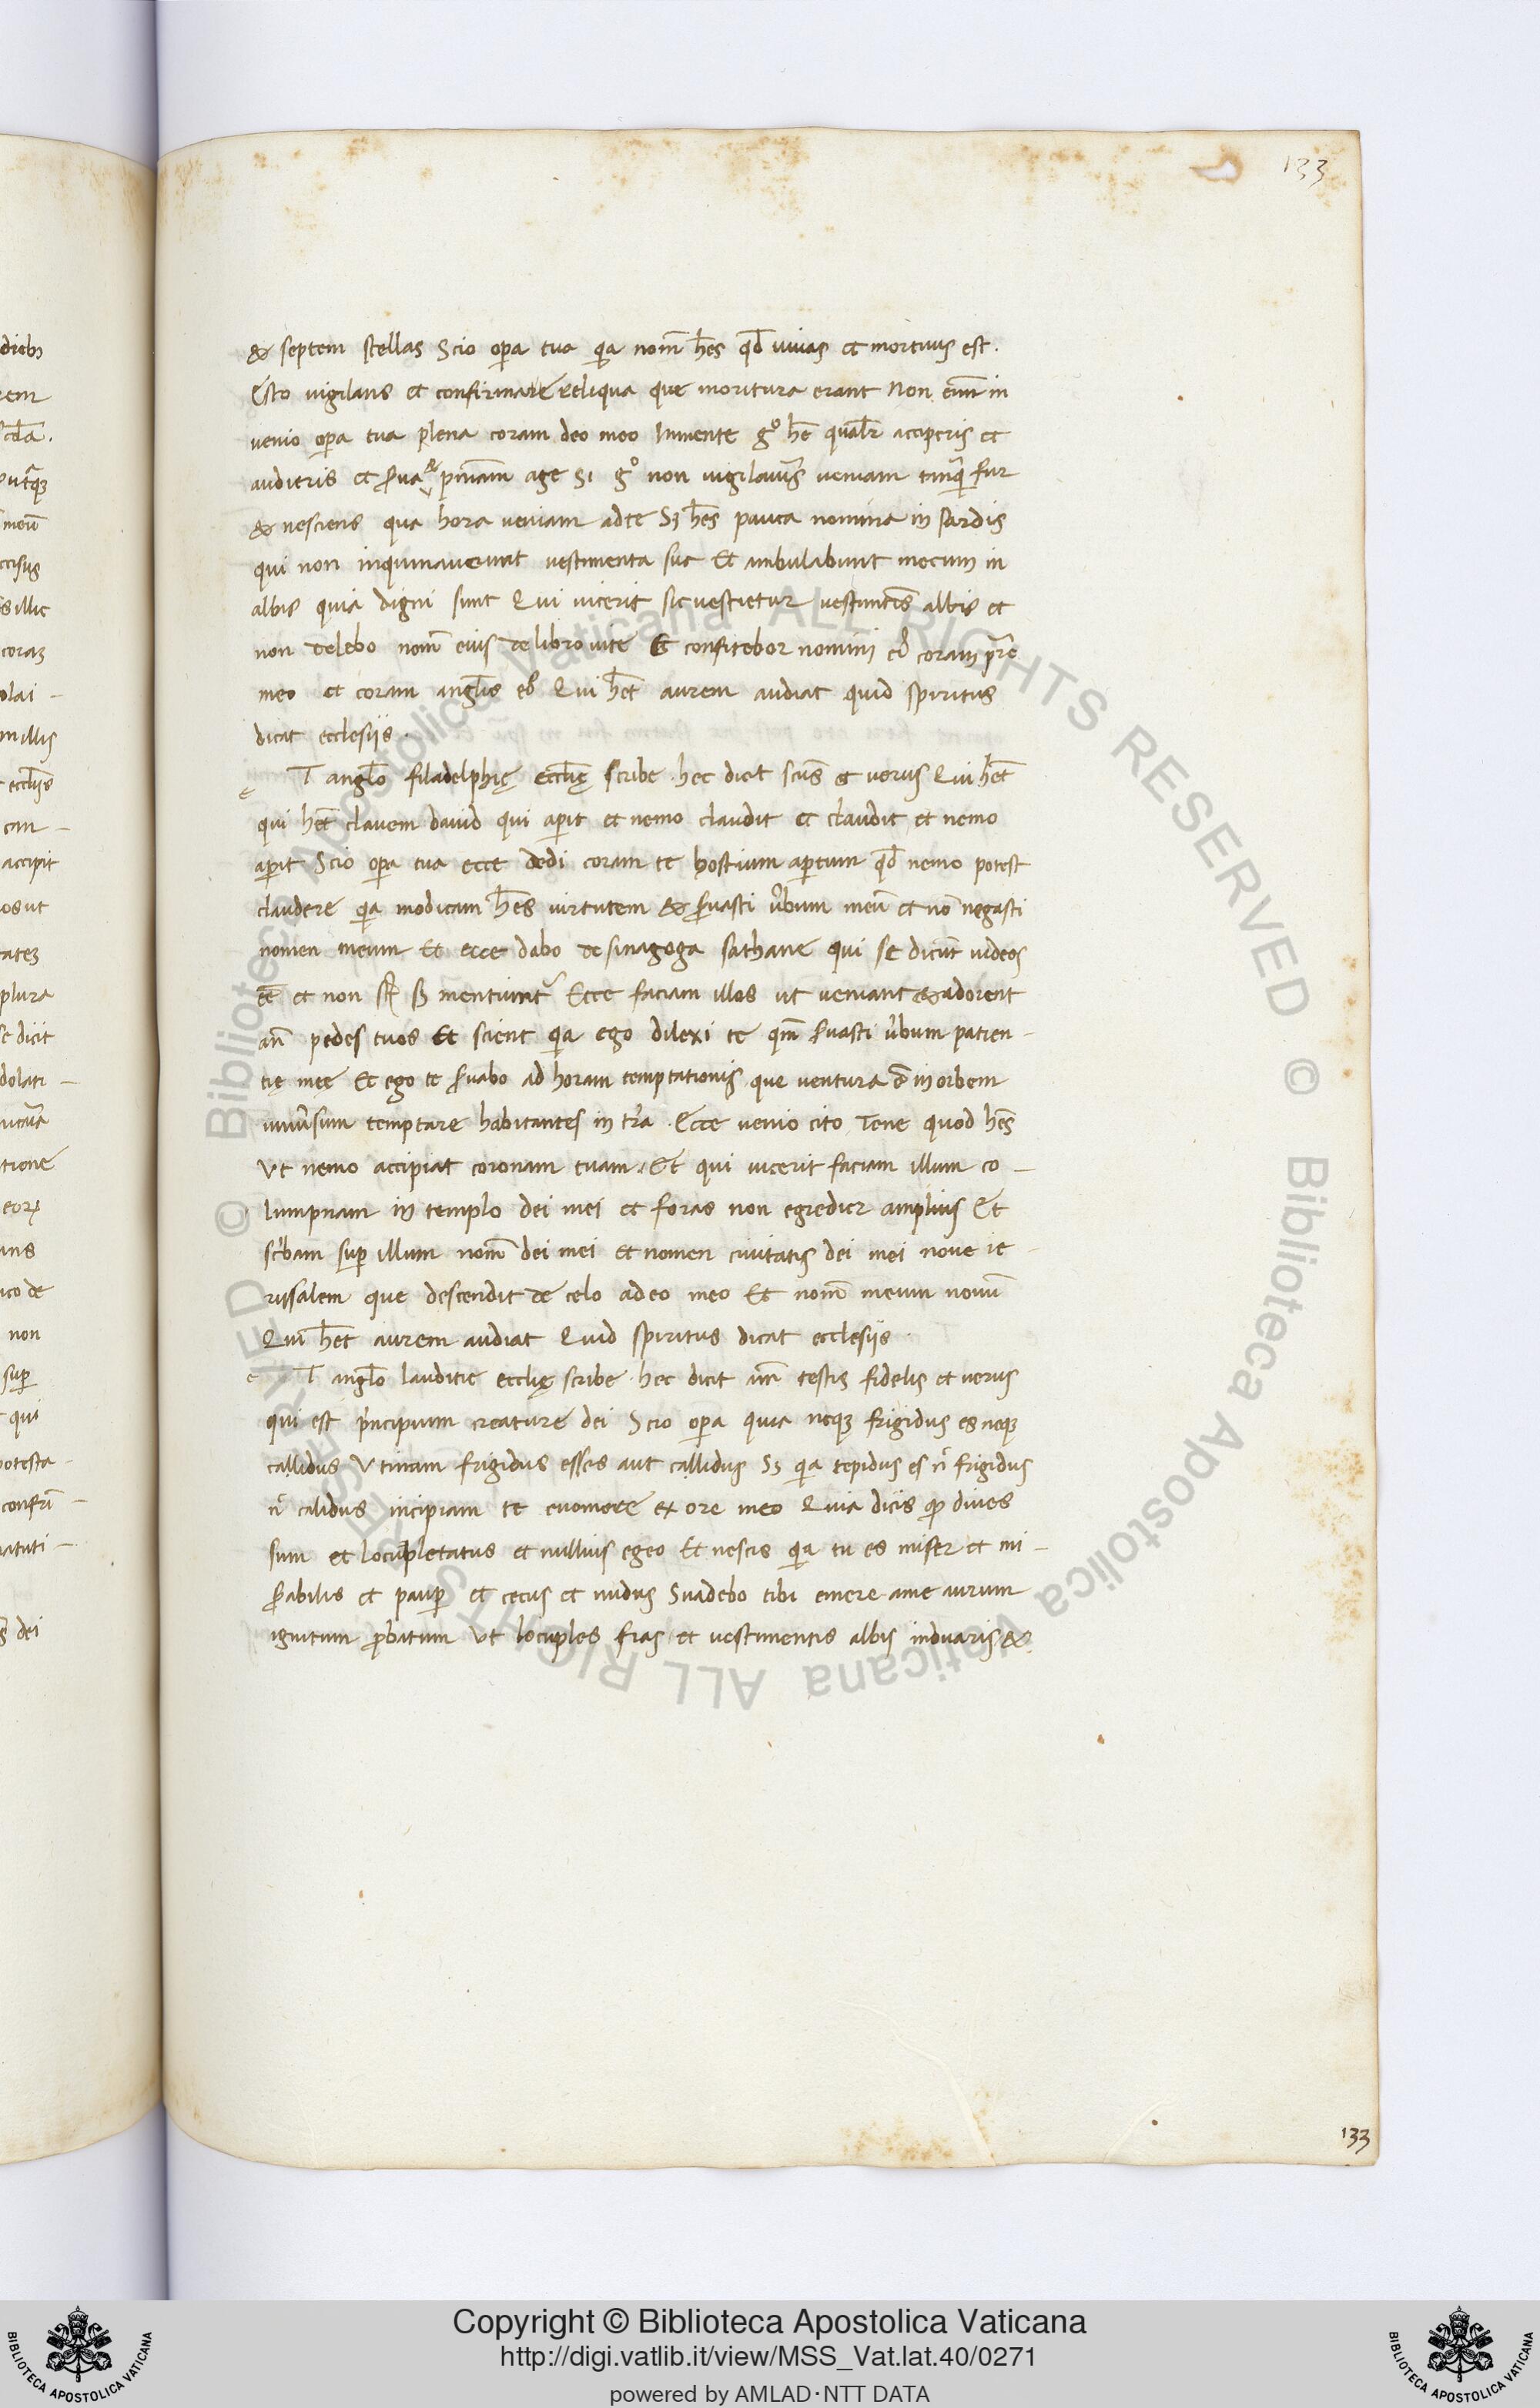 133
& septem stellas Scio opa tua qia nom̄ hēs qd̄ uiuas et mortuus est.
Esto vigilans et confirmare reliqua que moritura erant Non eīm in
uenio opa tua plena coram deo meo Inmente gº hē qualr̄ acciperis et
audieris et serua & pn̄iam age Si gº non uigilaueris ueniam tmq̄ fur
& nesciens qua hora ueniam adte Sz hēs pauca nomina in sardis
qui non inquinauerunt vestimenta sua Et ambulabunt mecum in
albis quia digni sunt Qui uicerit sic uestietur uestimtis albis et
non delebo nom̄ eius de libro uite Et confitebor nomini ei coram pr̄e
meo et coram angl̄is eiº Qui hēt aurem audiat quid spiritus
dicat ecclesiis.
e T angl̄o filadelphię eccl̄ię scribe. hec dicit scūs et uerus Qui hēt
qui hēt clauem dauid qui apit et nemo claudit et claudit et nemo
apit Scio opa tua ecce dedi coram te hostium aptum qd̄ nemo potest
claudere qia modicam hēs uirtutem & seruasti ūbum meū et nō negasti
nomen meum Et ecce dabo de sinagoga sathane qui se dicūt iudeos
eē et non st̄ sz mentiunt᷑ Ecce faciam illos ut ueniant & adorent
an̄ pedes tuos Et scient qia ego dilexi te qm̄ seruasti ūbum patien-
tię meę Et ego te seruabo ad horam temptationis que uentura ē in orbem
uniūsum temptare habitantes in tr̄a. Ecce uenio cito Tene quod hēs
Vt nemo accipiat coronam tuam. Et qui uicerit faciam illum co-
lumpnam in templo dei mei et foras non egrediet̄ amplius Et
sc̄bam sup illum nom̄ dei mei et nomen ciuitatis dei mei noue ie-
rusalem que descendit de celo adeo meo Et nom̄ meum nouū
Qui hēt aurem audiat Quid spiritus dicat ecclesiis.
e T angl̄o lauditie eccl̄ię scribe. hec dicit am̄ testis fidelis et uerus
qui est principium creature dei Scio opa quia neqz frigidus es neqz
callidus Vtinam frigidus esses aut callidus Sz qia tepidus es n̄ frigidus
n̄ calidus incipiam te euomere ex ore meo Quia dicis qd̄ diues
sum et locupletatus et nullius egeo Et nescis qia tu es miser et mi-
serabilis et paup et cecus et nudus Suadebo tibi emere ame aurum
ignitum pbatum Vt locuples fias et uestimentis albis induaris &
133
Copyright © Biblioteca Apostolica Vaticana
http://digi.vatlib.it/view/MSS_Vat.lat.40/0271
powered by AMLAD·NTT DATA
BIBLIOTECA APOSTOLICA VATICANA
BIBLIOTECA APOSTOLICA VATICANA
© Biblioteca Apostolica Vaticana ALL RIGHTS RESERVED
© Biblioteca Apostolica Vaticana ALL RIGHTS RESERVED